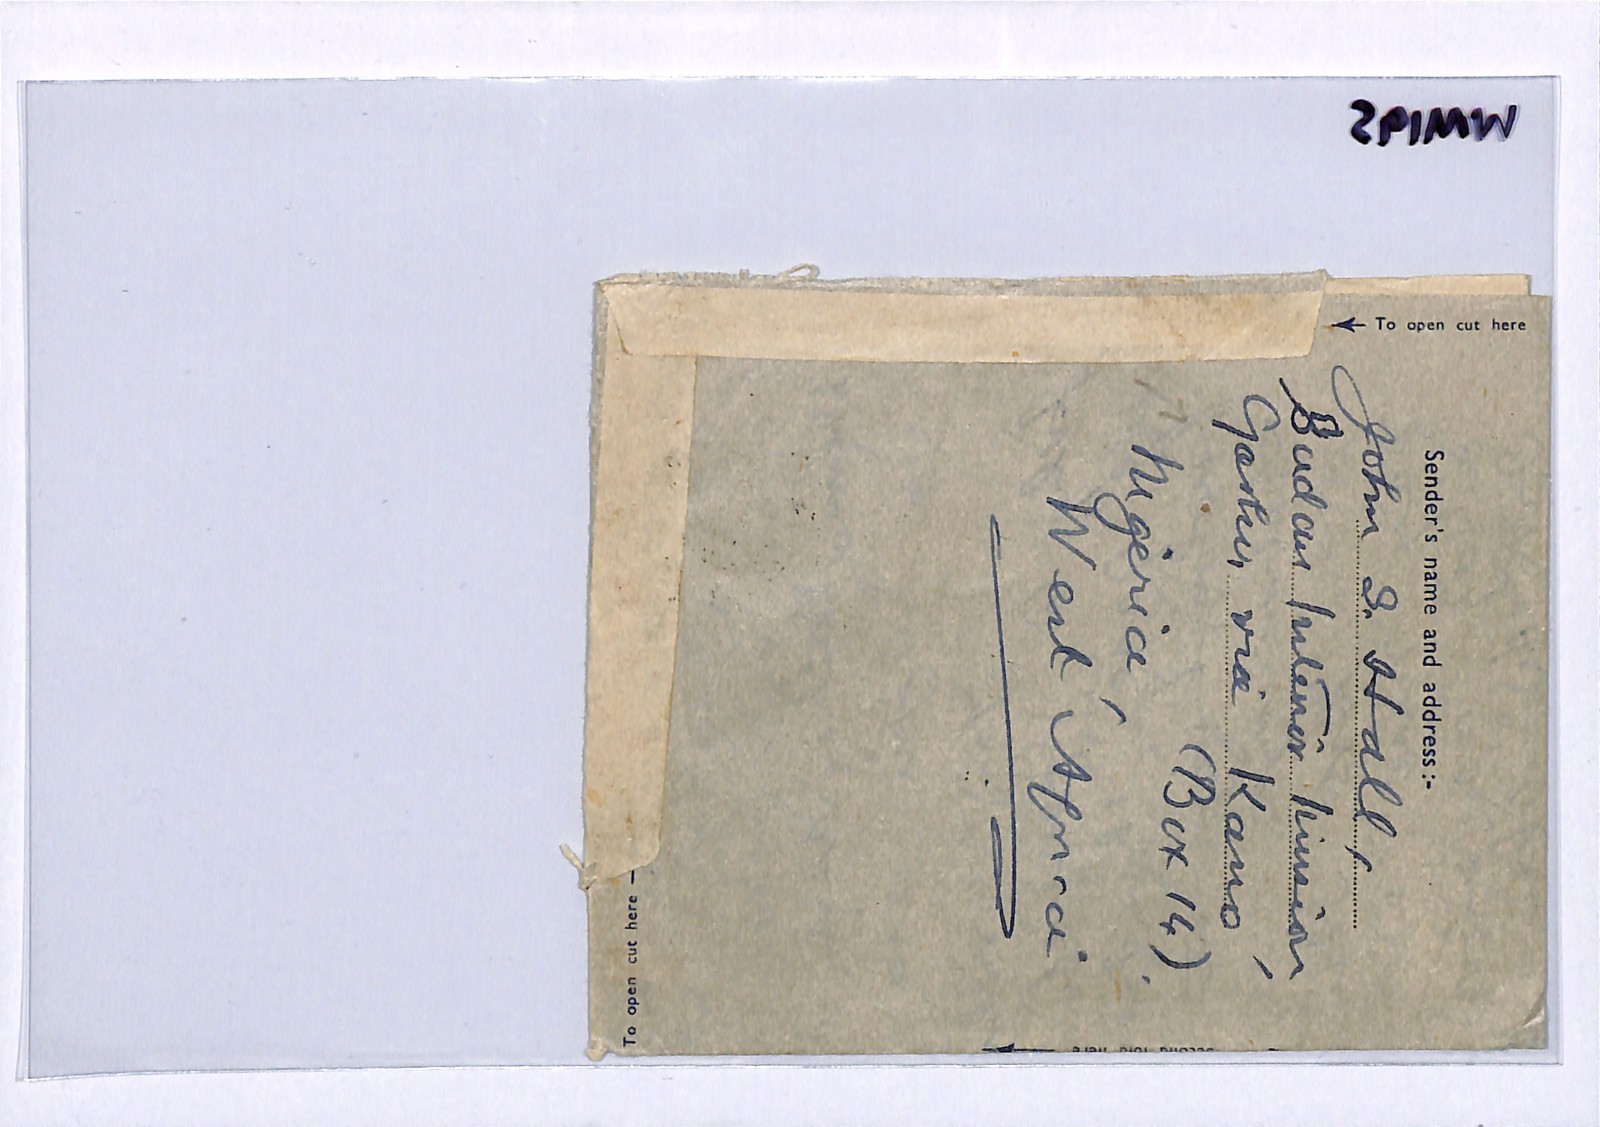 MM195
To open cut here
Sender's name and address:-
John S. Hall,
Sudan Interior Mission,
Gashua, via Kano,
(Box 14).
Nigeria,
West Africa
To open cut here
Second fold here